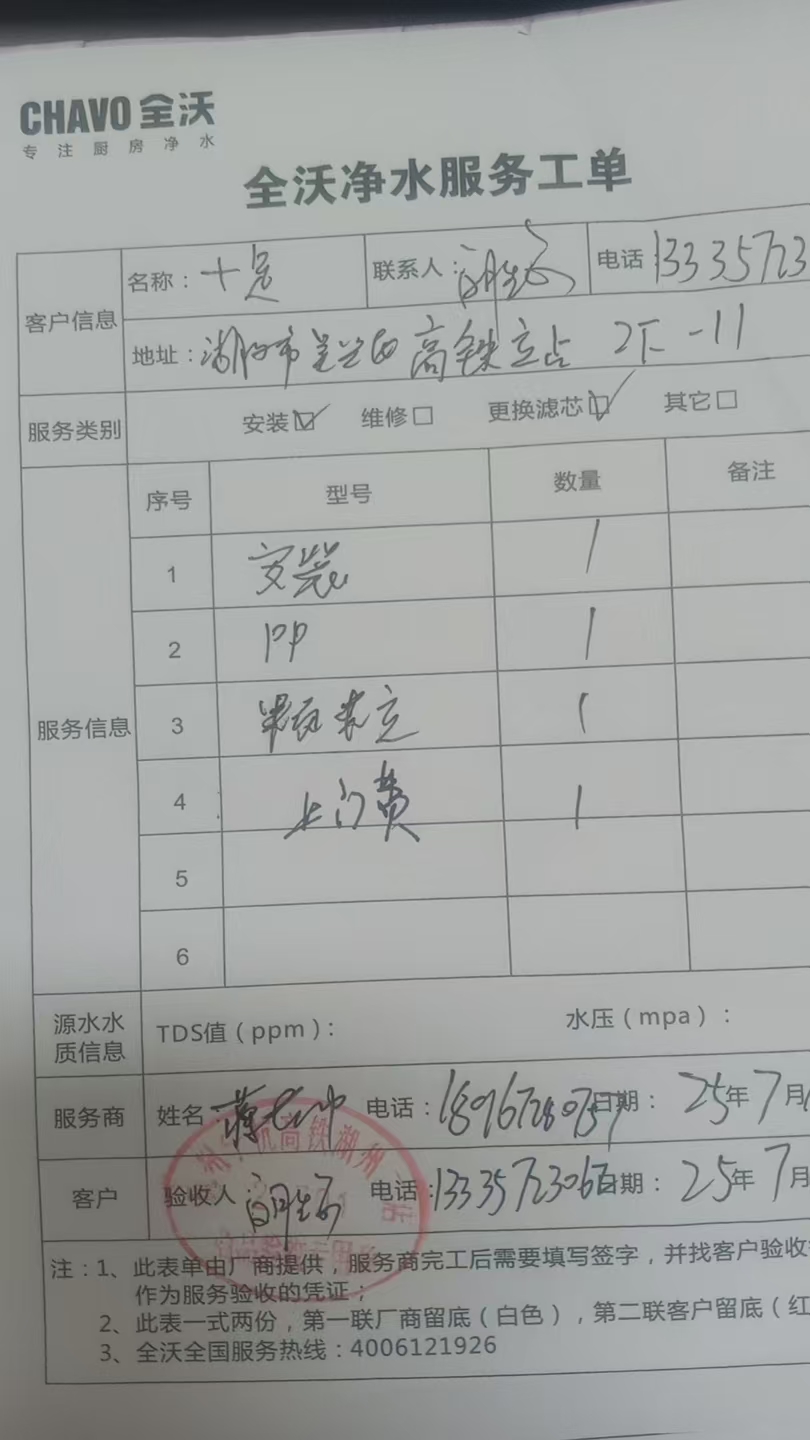 CHAVO 全沃
专注厨房净水
全沃净水服务工单
客户信息 名称：十足 联系人： 电话 133 35723
地址：湖州市吴兴区高铁站 2F-11
服务类别 安装☑ 维修☐ 更换滤芯☑ 其它☐
服务信息 序号 型号 数量 备注
1 安装 1
2 PP 1
3 1
4 上门费 1
5
6
源水水质信息 TDS值（ppm）： 水压（mpa）：
服务商 姓名： 电话：18967280757 日期： 25年7月
客户 验收人： 电话：13335723067 日期： 25年7月
注：1、此表单由厂商提供，服务商完工后需要填写签字，并找客户验收
作为服务验收的凭证；
2、此表一式两份，第一联厂商留底（白色），第二联客户留底（红
3、全沃全国服务热线：4006121926